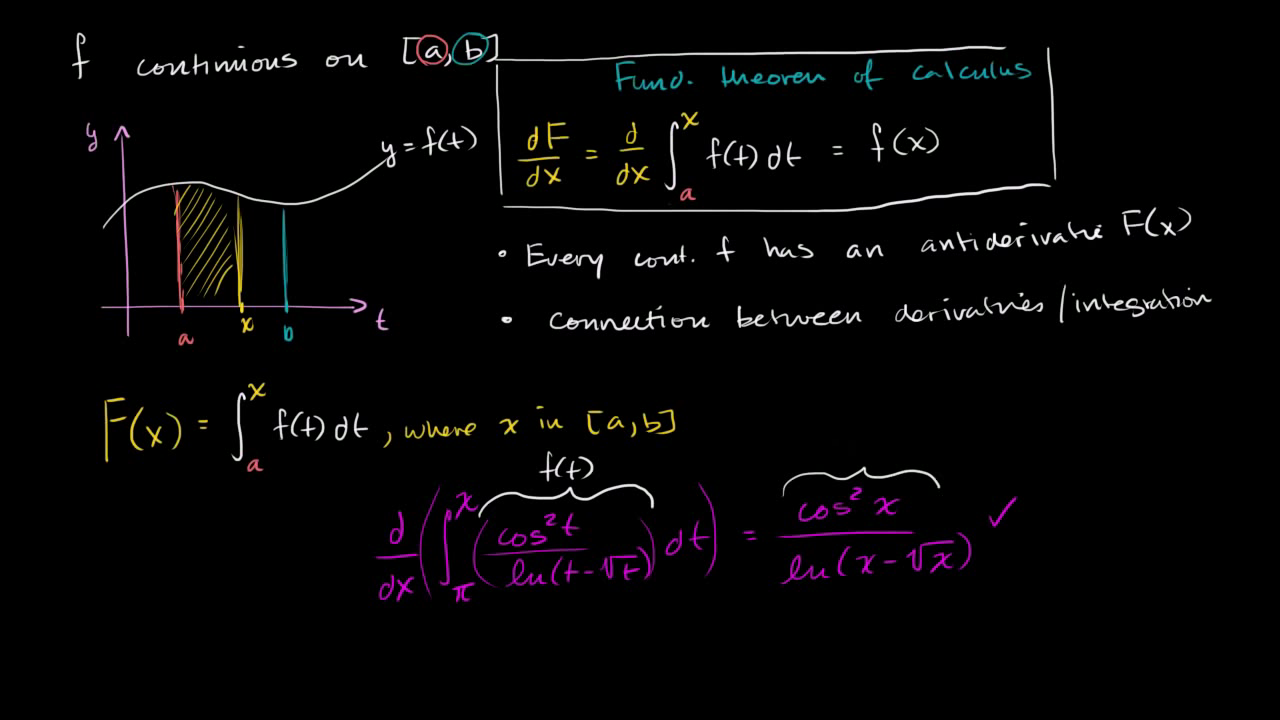 f continuous on [a, b]
Fund. theorem of calculus
dF/dx = d/dx ∫_a^x f(t) dt = f(x)
y
y = f(t)
a x b t
• Every cont. f has an antiderivative F(x)
• connection between derivatives/integration
F(x) = ∫_a^x f(t) dt, where x in [a, b]
f(t)
d/dx (∫_π^x (cos²t / ln(t-√t)) dt) = cos² x / ln(x-√x) ✓